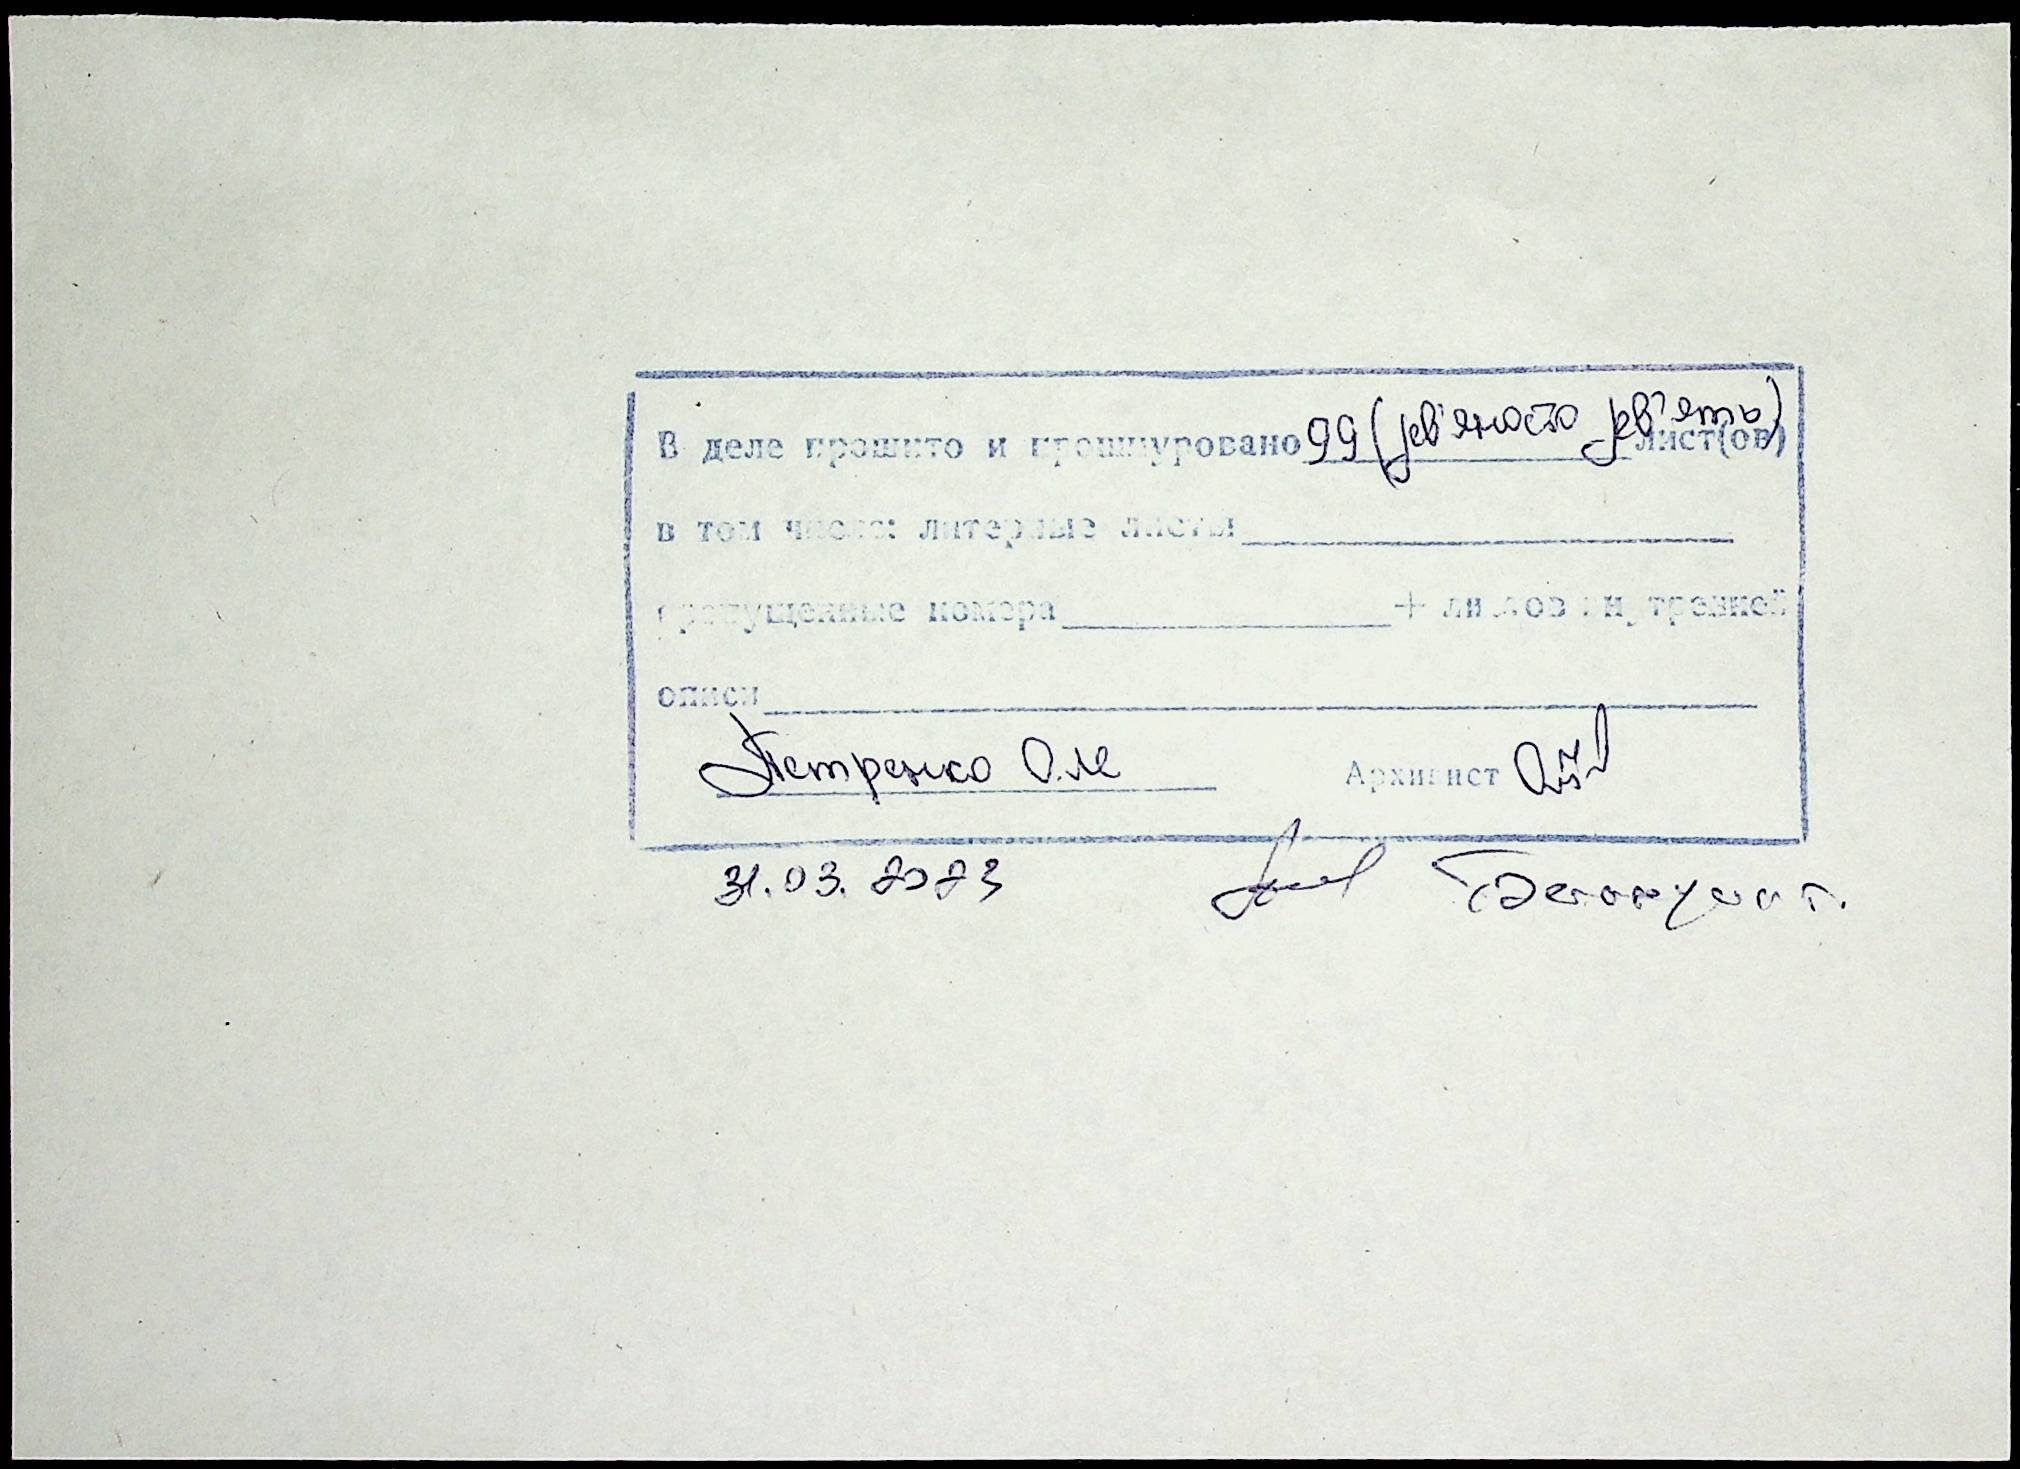 В деле прошито и прошнуровано 99 (дев'яносто дев'ять) лист(ов)
в том числе: литерные листы
пропущенные номера + листов внутренней
описи
Петренко О.М.
Архивист
31.03.2023